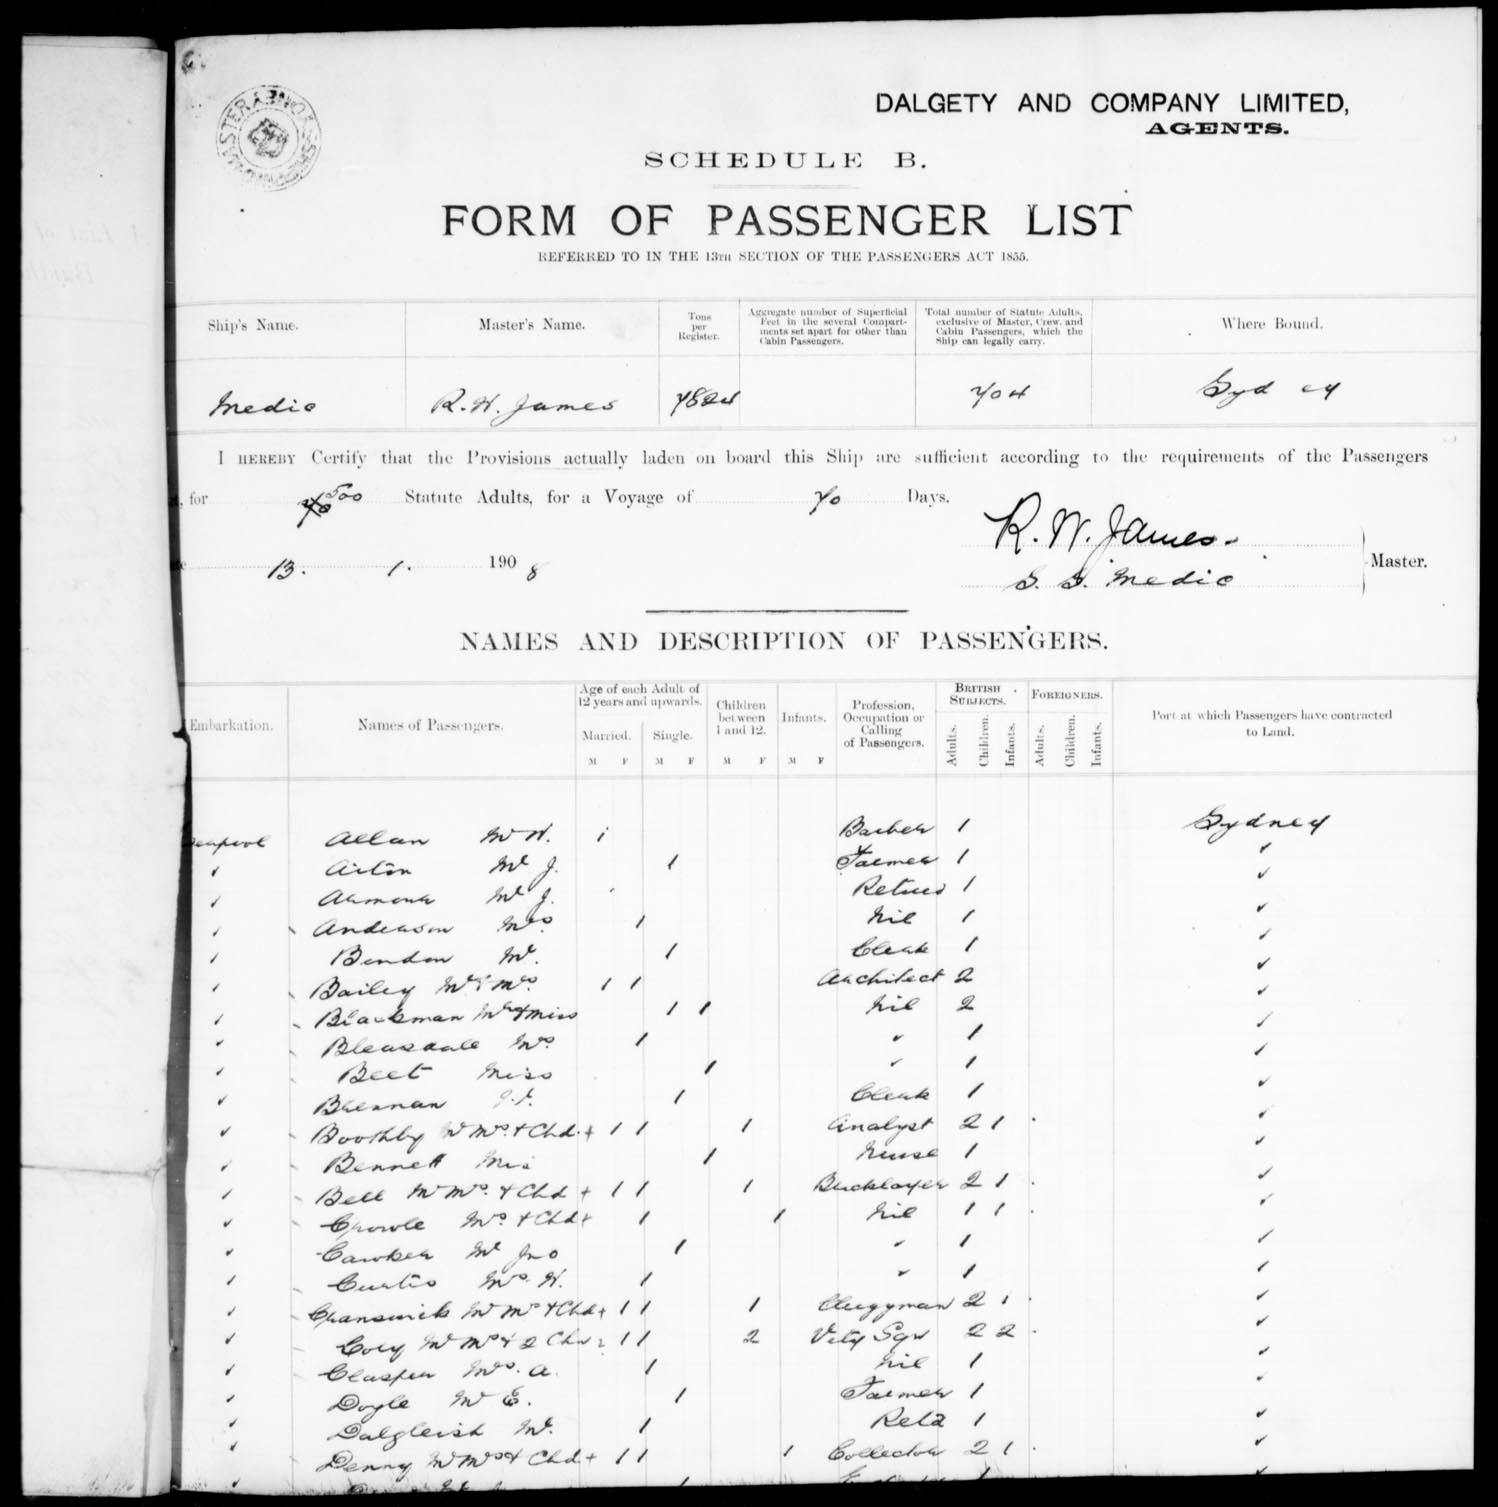 DALGETY AND COMPANY LIMITED,
AGENTS.
SCHEDULE B.
FORM OF PASSENGER LIST
REFERRED TO IN THE 13TH SECTION OF THE PASSENGERS ACT 1855.
Ship's Name. Master's Name. Tons per Register. Aggregate number of Superficial Feet in the several Compartments set apart for other than Cabin Passengers. Total number of Statute Adults, exclusive of Master, Crew, and Cabin Passengers, which the Ship can legally carry. Where Bound.
Medic R. W. James 7824 704 Sydney
I HEREBY Certify that the Provisions actually laden on board this Ship are sufficient according to the requirements of the Passengers
for 500 Statute Adults, for a Voyage of 70 Days.
R. W. James.
13. 1. 1908 S. S. Medic Master.
NAMES AND DESCRIPTION OF PASSENGERS.
Embarkation. Names of Passengers. Age of each Adult of 12 years and upwards. Married. M F Single. M F Children between 1 and 12. M F Infants. M F Profession, Occupation or Calling of Passengers. BRITISH SUBJECTS. Adults. Children. Infants. FOREIGNERS. Adults. Children. Infants. Port at which Passengers have contracted to Land.
Allan Mr W. 1 Barber 1 Sydney
Mr J. 1 Farmer 1 ✓
Mr J. Retired 1 ✓
Anderson Mrs 1 Nil 1 ✓
Bendon Mr. 1 Clerk 1 ✓
Bailey Mr & Mrs 1 1 Architect 2 ✓
Blackman Mr & Miss 1 1 Nil 2 ✓
Bleasdale Mrs 1 " 1 ✓
Beet Miss 1 " 1 ✓
Brennan 1 Clerk 1 ✓
Boothby Mr Mrs + Chd + 1 1 1 Analyst 2 1 ✓
Bennett Miss 1 Nurse 1 ✓
Bell Mr Mrs. + Chd + 1 1 1 Bricklayer 2 1 ✓
Crowle Mrs + Chd + 1 1 Nil 1 1 ✓
Cawker Mr Jno 1 " 1 ✓
Curtis Mrs W. 1 " 1 ✓
Cranswick Mr Mrs + Chd + 1 1 1 Clergyman 2 1 ✓
Cory Mr Mrs + 2 Chd 1 1 2 Vety Sgn 2 2 ✓
Clasper Mrs. A. 1 Nil 1 ✓
Doyle Mr E. 1 Farmer 1 ✓
Dalgleish Mr. 1 Retd 1 ✓
Denny Mr Mrs + Chd + 1 1 1 Collector 2 1 ✓